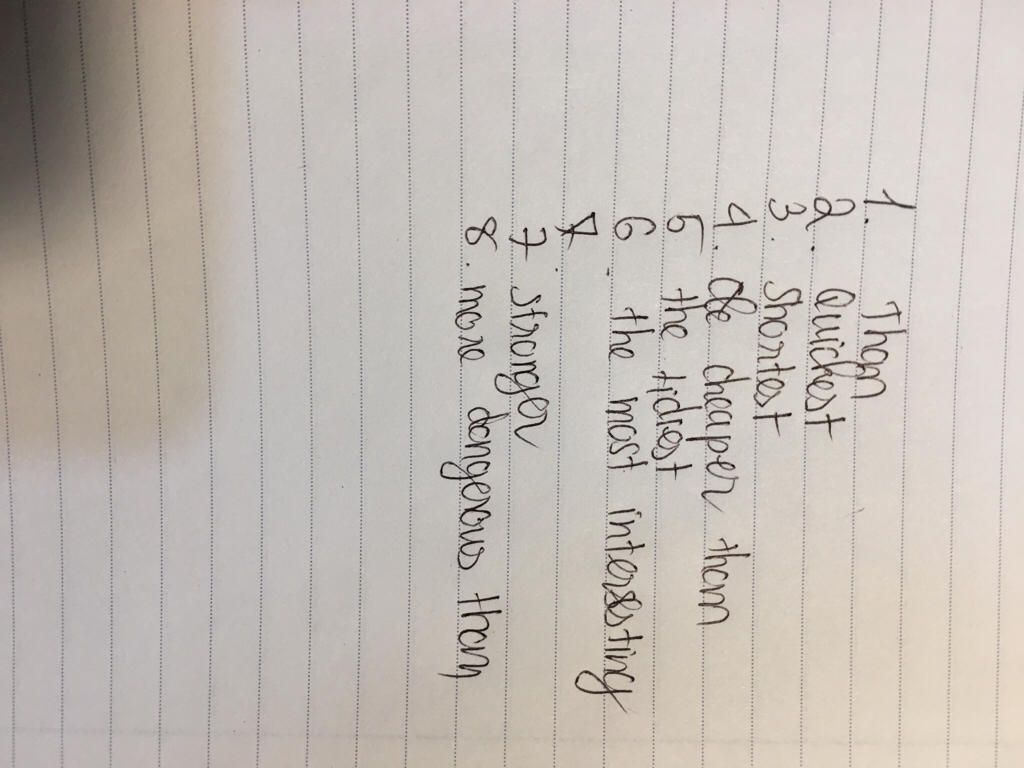 1. Than
2. quickest
3. shortest
4. be cheaper than
5 the tidiest
6. the most interesting
7
7. stronger
8. more dangerous than